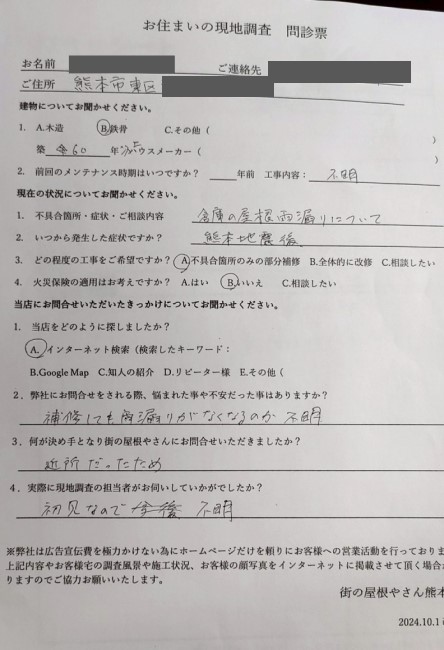 お住まいの現地調査 問診票
お名前 ご連絡先
ご住所 熊本市東区
建物についてお聞かせください。
1. A.木造 B.鉄骨 C.その他（
築 60 年 ハウスメーカー（
2. 前回のメンテナンス時期はいつですか? 年前 工事内容: 不明
現在の状況についてお聞かせください。
1. 不具合箇所・症状・ご相談内容 倉庫の屋根雨漏りについて
2. いつから発生した症状ですか? 熊本地震後
3. どの程度の工事をご希望ですか? A.不具合箇所のみの部分補修 B.全体的に改修 C.相談したい
4. 火災保険の適用はお考えですか? A.はい B.いいえ C.相談したい
当店にお問合せいただいたきっかけについてお聞かせください。
1. 当店をどのように探しましたか?
A. インターネット検索（検索したキーワード:
B.Google Map C.知人の紹介 D.リピーター様 E.その他（
2. 弊社にお問合せをされる際、悩まれた事や不安だった事はありますか?
補修しても雨漏りがなくなるのか 不明
3. 何が決め手となり街の屋根やさんにお問合せいただきましたか?
近所だったため
4. 実際に現地調査の担当者がお伺いしていかがでしたか?
初見なので 今後 不明
※弊社は広告宣伝費を極力かけない為にホームページだけを頼りにお客様への営業活動を行っておりま
上記内容やお客様宅の調査風景や施工状況、お客様の顔写真をインターネットに掲載させて頂く場合か
りますのでご協力お願いいたします。
街の屋根やさん熊本
2024.10.1